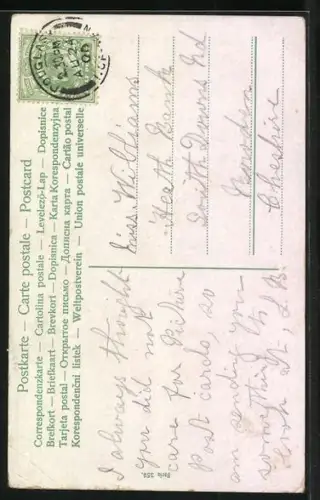 Postkarte – Carte postale – Postcard
Correspondenzkarte — Cartolina postale — Levelező-Lap — Dopisnice
Brefkort — Briefkaart — Brevkort — Dopisnica — Karta Korespondenzyjna
Tarjeta postal — Открытое письмо — Дописна карта — Cartão postal
Korespondenční lístek — Weltpostverein — Union postale universelle
DOUGLAS
I always thought
you did not
care for
Post cards, so
am sending you
something
Love
Serie 324.
Miss. Williams
Heath Bank
South Downs Rd
Cheshire